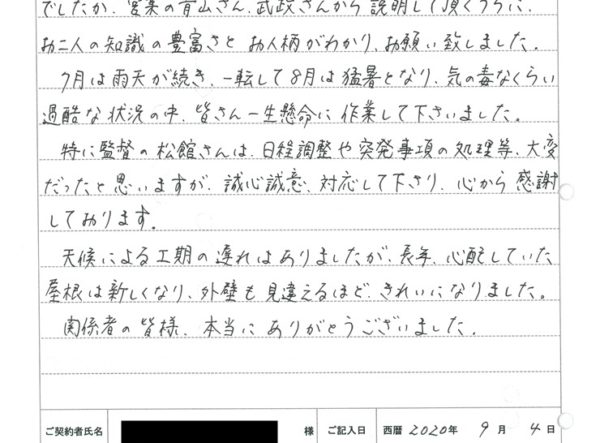 でしたが、営業の青山さん、武政さんから説明して頂くうちに、
お二人の知識の豊富さと お人柄がわかり、お願い致しました。
7月は雨天が続き、一転して8月は猛暑となり、気の毒なくらい
過酷な状況の中、皆さん一生懸命に作業して下さいました。
特に監督の松館さんは、日程調整や突発事項の処理等、大変
だったと思いますが、誠心誠意、対応して下さり、心から感謝
しております。
天候による工期の遅れはありましたが、長年、心配していた
屋根は新しくなり、外壁も見違えるほど、きれいになりました。
関係者の皆様、本当にありがとうございました。
ご契約者氏名 様 ご記入日 西暦 2020年 9月 4日